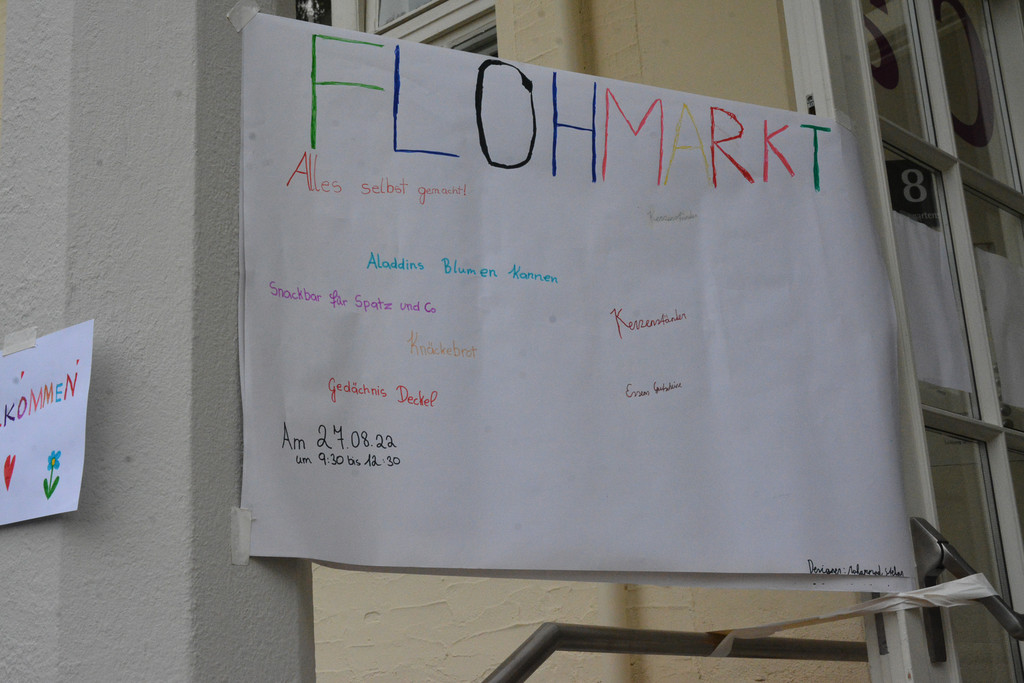 FLOHMARKT
Alles selbst gemacht!
Aladdins Blumen Kannen
Snackbar für Spatz und Co
Kerzenständer
Knäckebrot
Gedächnis Deckel
Essens Gutscheine
Am 27.08.22
um 9:30 bis 12:30
Designer:
KOMMEN
8